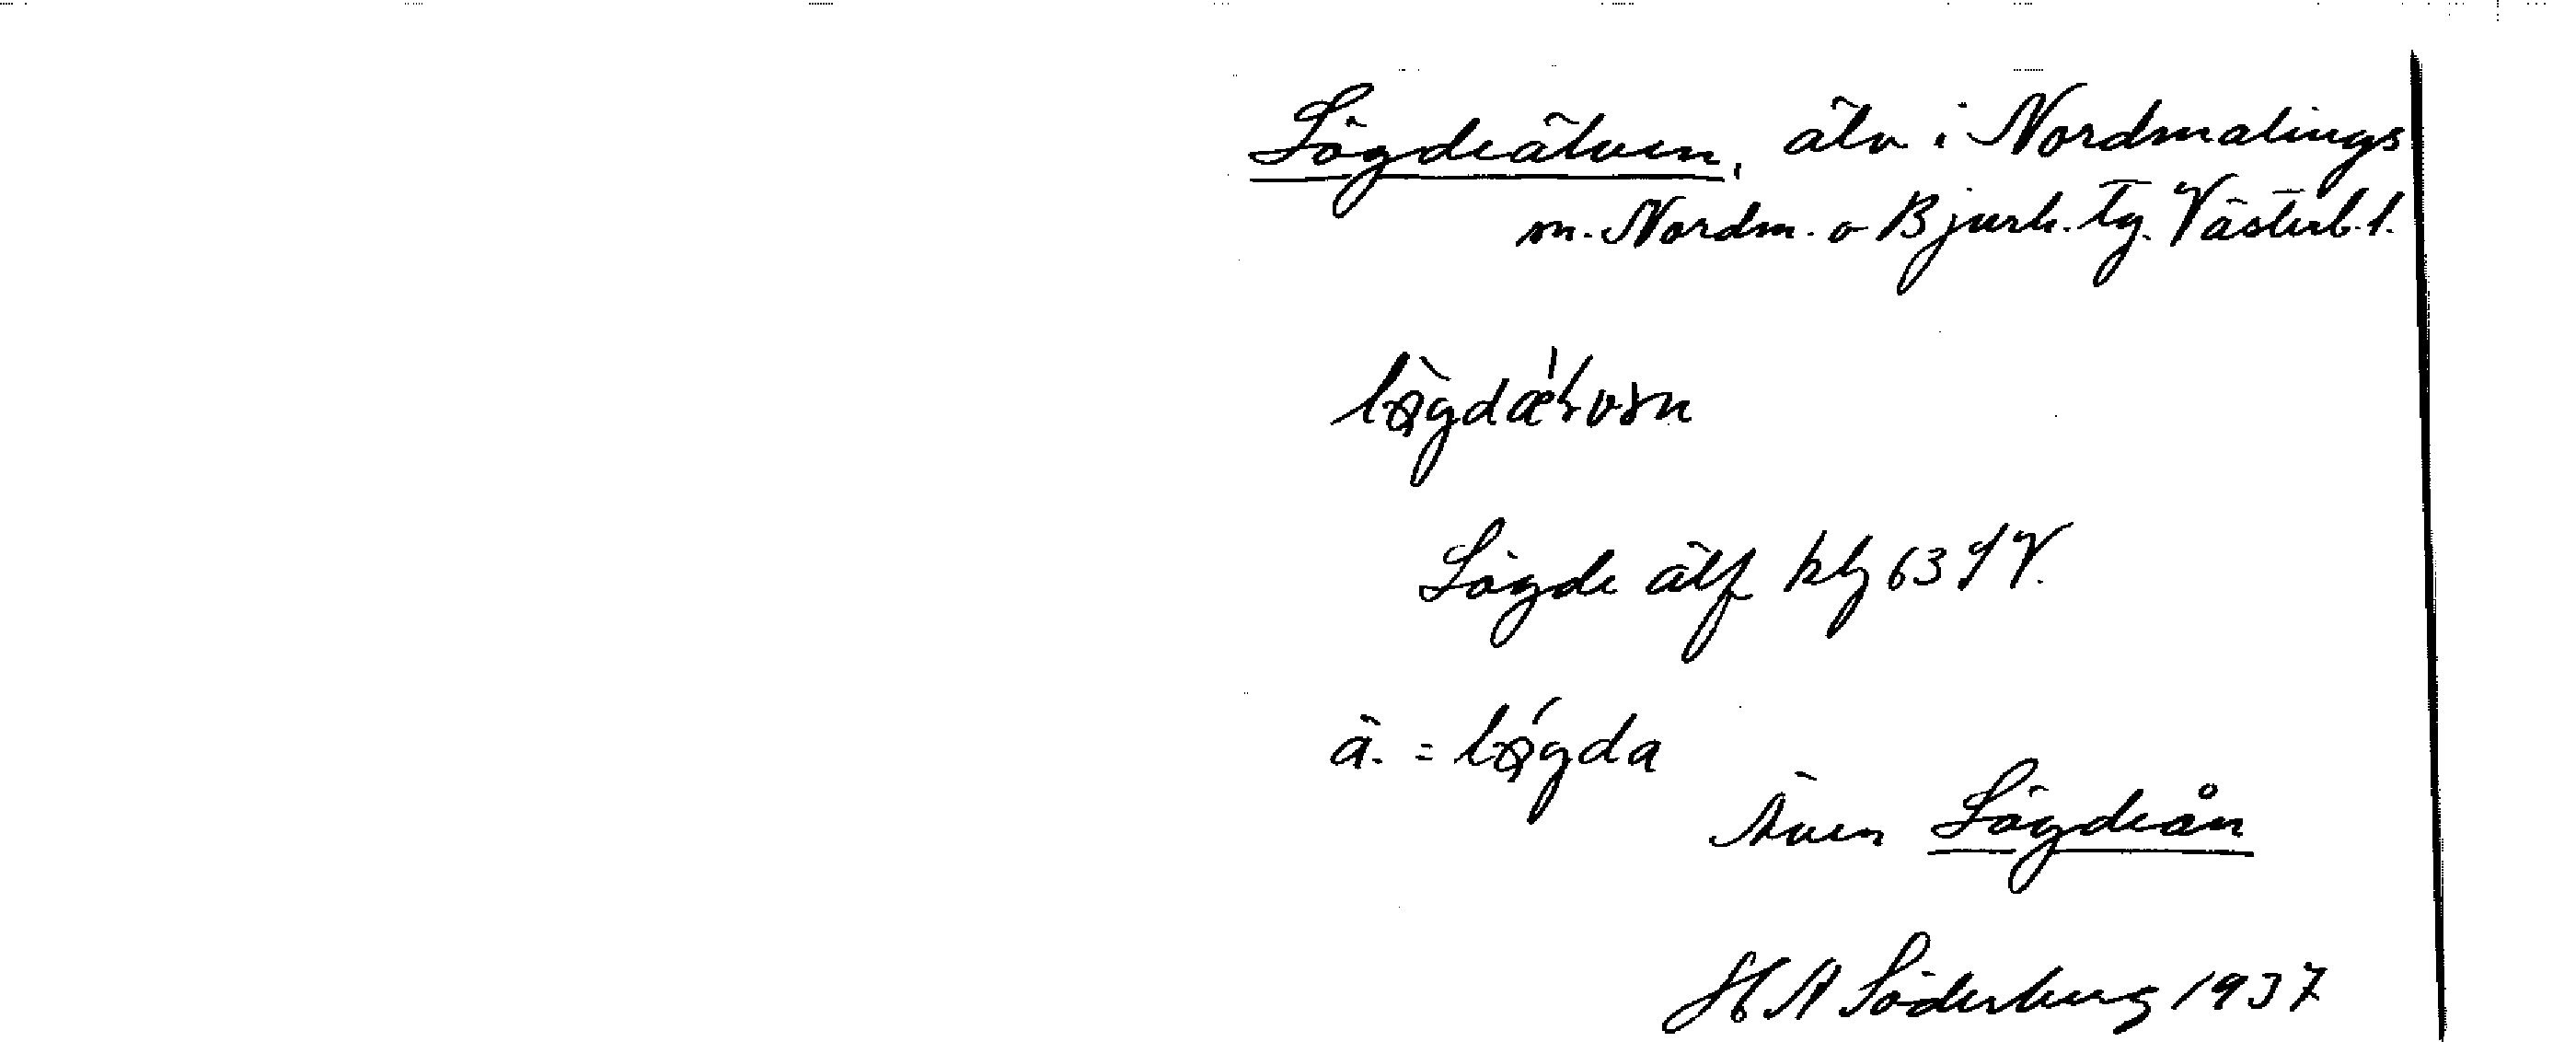 Lögdeälven, älv i Nordmalings
m. Nordm. o Bjurh. tg. Västerb. l.
Lögde älf kbl 63 SV.
ä. =
Även Lögdeån
H A Söderberg 1937